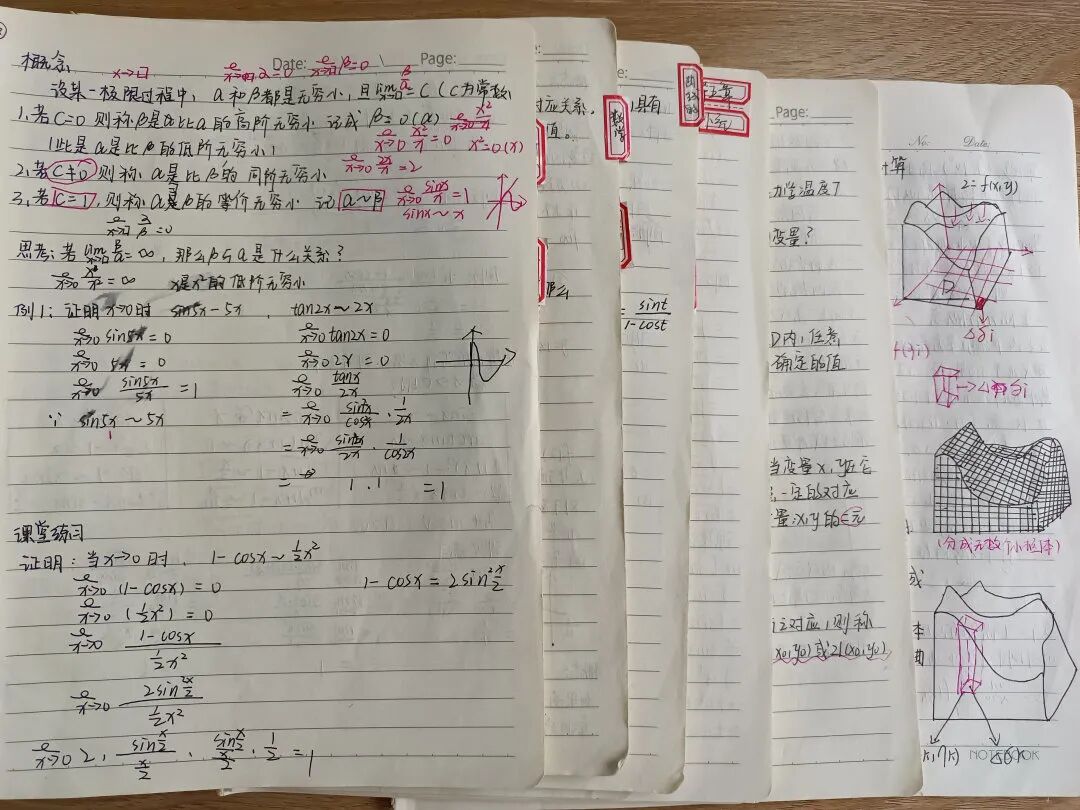 概念
Date:
Page:
x→□
lim x→□ α=0 lim x→□ β=0
设某一极限过程中, α和β都是无穷小, 且 lim β/α = C (C为常数)
1. 若C=0 则称β是比α的高阶无穷小 记成 β=o(α) lim x→0 x²/x
(此是α是比β的低阶无穷小) lim x→0 x²/x=0 x²=o(x)
2. 若C≠0 则称α是比β的同阶无穷小 lim x→0 2x/x=2
3. 若C=1, 则称α是β的等价无穷小 记 α~β lim x→0 sinx/x=1
sinx~x
思考: 若 lim β/α=∞, 那么β与α是什么关系?
=∞ 的低阶无穷小
例1: 证明x→0时 sin5x~5x , tan2x~2x
lim x→0 sin5x=0 lim x→0 tan2x=0
lim x→0 5x=0 lim x→0 2x=0
lim x→0 sin5x/5x=1 lim x→0 tanx/2x
∵ sin5x~5x = lim x→0 sin2x/cos2x · 1/2x
= lim x→0 sin2x/2x · 1/cos2x
= 1 · 1 = 1
课堂练习
证明: 当x→0时, 1-cosx~½x²
lim x→0 (1-cosx)=0 1-cosx=2sin²x/2
lim x→0 (½x²)=0
lim x→0 (1-cosx)/(½x²)
lim x→0 (2sin²x/2)/(½x²)
lim x→0 2 · (sin x/2)/(x/2) · (sin x/2)/(x/2) · ½ =1
对应关系,
值。
那么
具有
数学
= sint/(1-cost)
Page:
变量?
D内, 任意
确定的值
当变量x, y在它
一定的对应
量x,y的二元
对应, 则称
(x0,y0)或z|(x0,y0)
No:
Date:
算
z=f(x,y)
D
Δδi
f(
(分成无数个小柱体)
或
NOTEBOOK